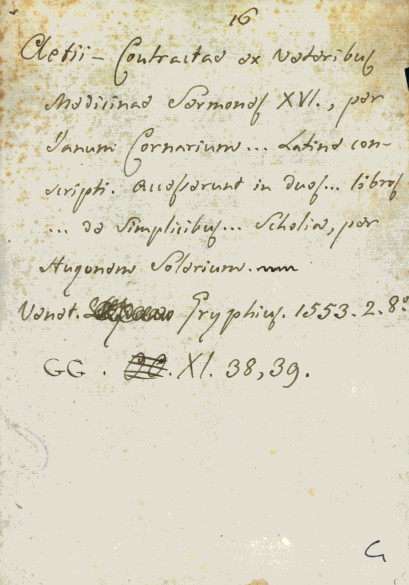 16
Aetii – Contractae ex Veteribus
Medicinae Sermones XVI., per
Ianum Cornarium... Latine con-
scripti. Accesserunt in duos... libros
... de Simplicibus... Scholia, per
Hugonem Solerium.
Venet. Gryphius. 1553. 2. 8.º
GG. XI. 38, 39.
G